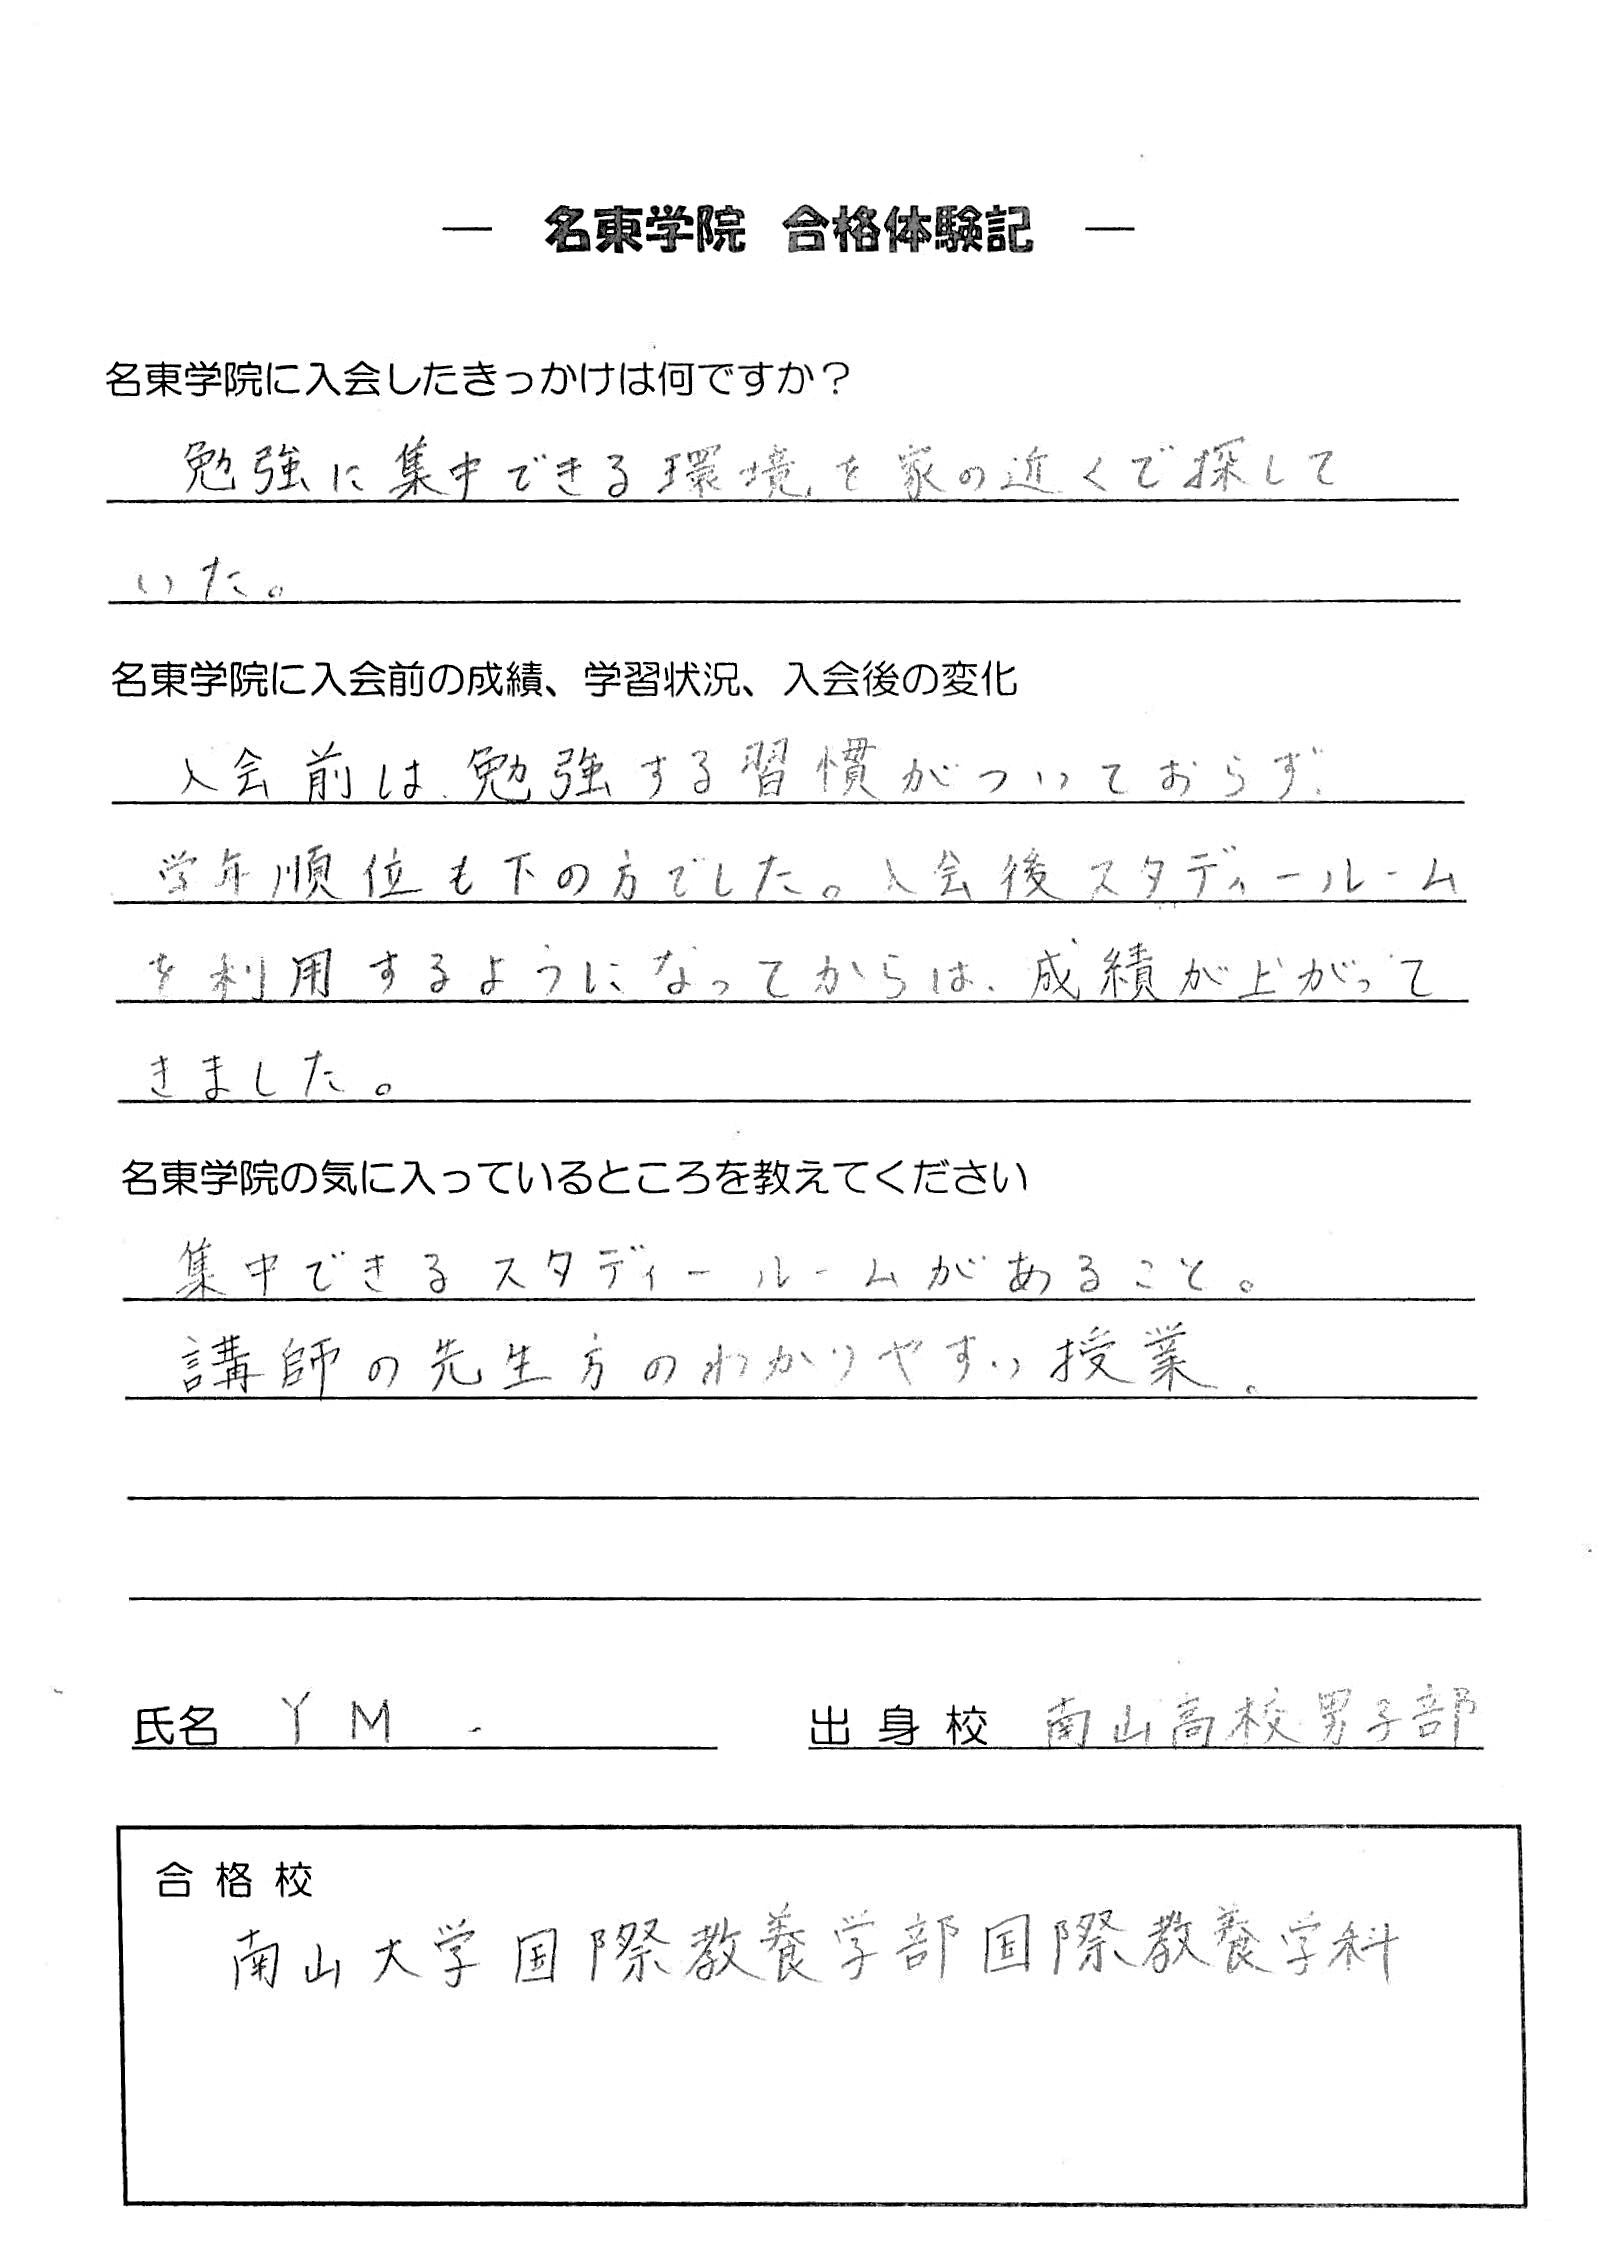 ― 名東学院 合格体験記 ―
名東学院に入会したきっかけは何ですか？
勉強に集中できる環境を家の近くで探して
いた。
名東学院に入会前の成績、学習状況、入会後の変化
入会前は、勉強する習慣がついておらず、
学年順位も下の方でした。入会後スタディールーム
を利用するようになってからは、成績が上がって
きました。
名東学院の気に入っているところを教えてください
集中できるスタディールームがあること。
講師の先生方のわかりやすい授業。
氏名 YM 出身校 南山高校男子部
合格校
南山大学国際教養学部国際教養学科